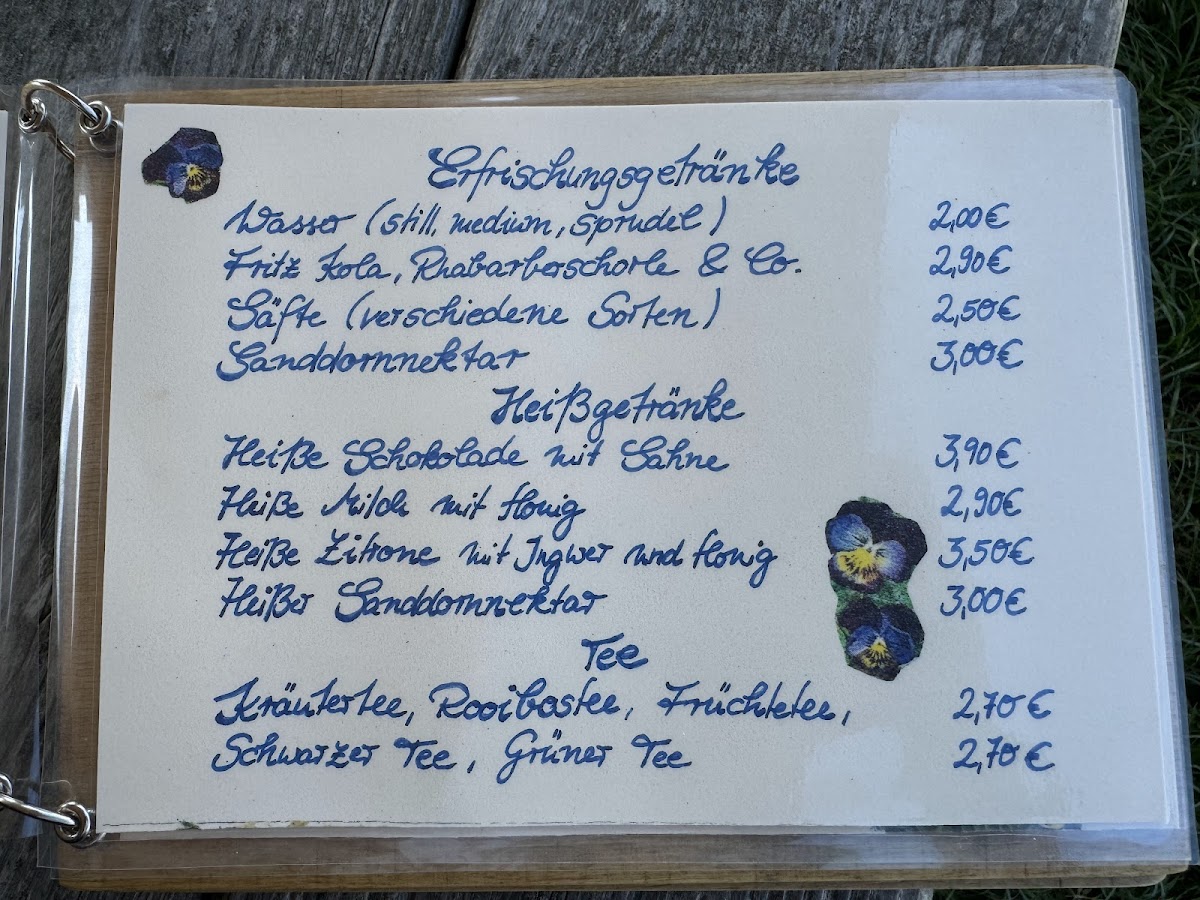 Erfrischungsgetränke
Wasser (still, medium, sprudel) 2,00€
Fritz Kola, Rhabarberschorle & Co. 2,90€
Säfte (verschiedene Sorten) 2,50€
Sanddornnektar 3,00€
Heißgetränke
Heiße Schokolade mit Sahne 3,90€
Heiße Milch mit Honig 2,90€
Heiße Zitrone mit Ingwer und Honig 3,50€
Heißer Sanddornnektar 3,00€
Tee
Kräutertee, Rooibostee, Früchtetee, 2,70€
Schwarzer Tee, Grüner Tee 2,70€